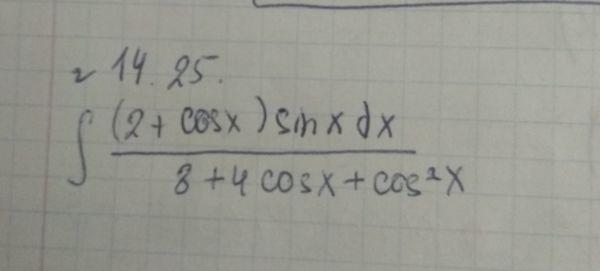 № 14.25.
∫ (2 + cosx) sin x dx / 8 + 4 cosx + cos²x